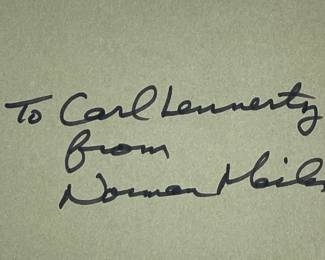 To Carl Lennertz
from
Norman Mailer